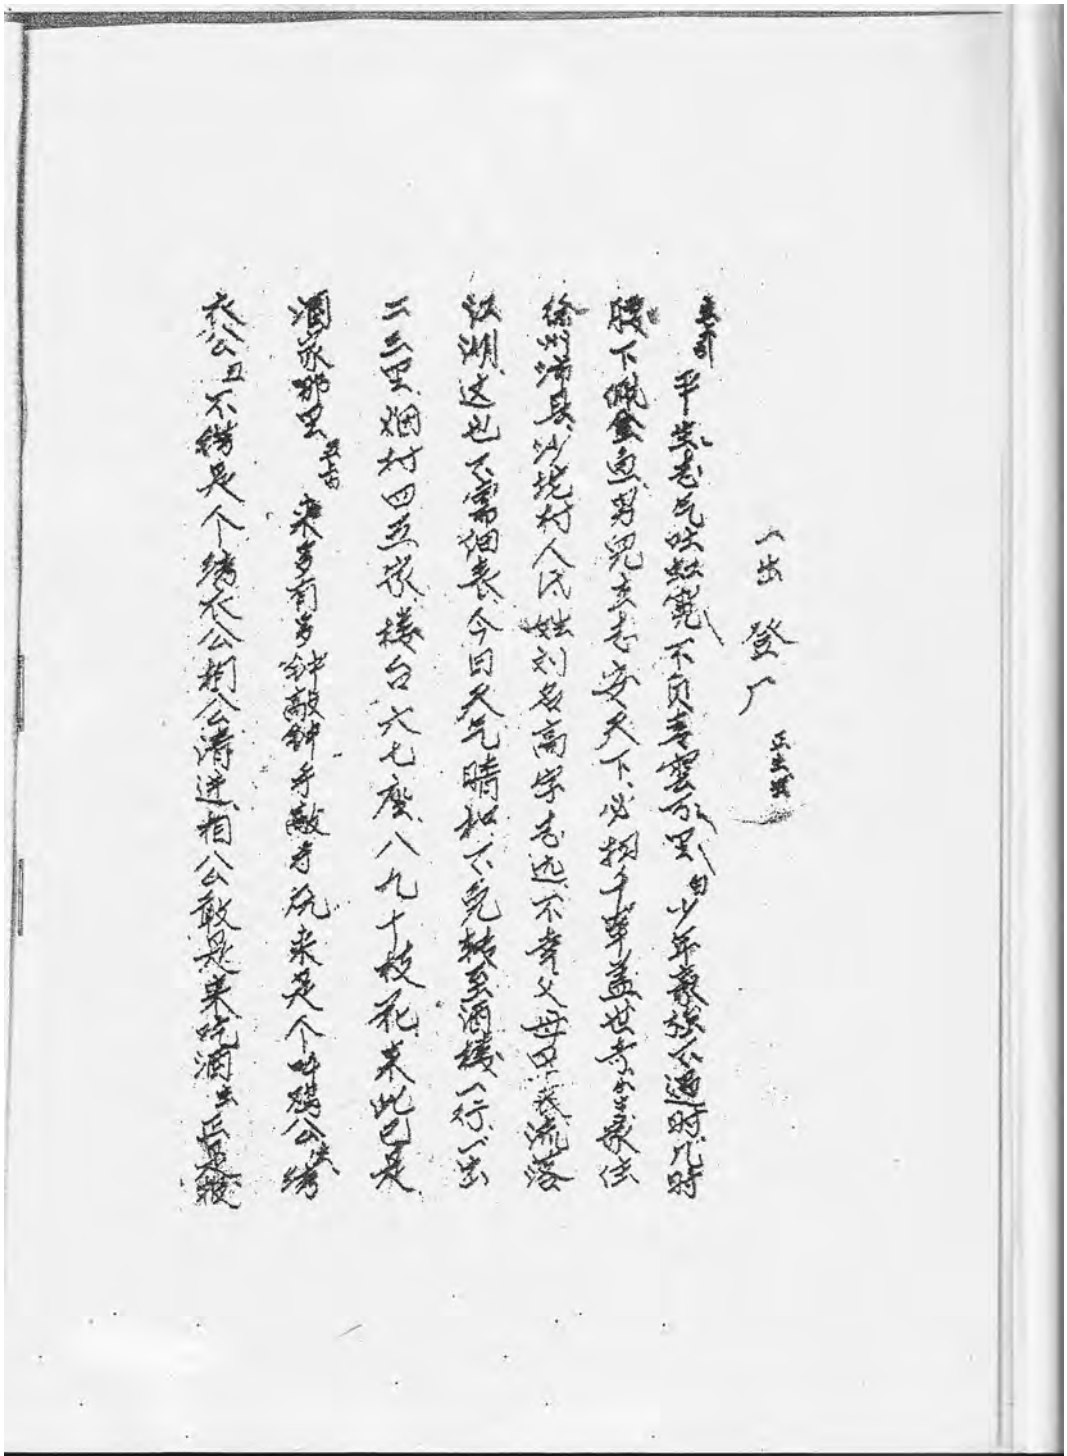 一出 登厂 正生唱
生引 平生志气吐虹霓 不负青云万里 白 少年豪强不遇时 几时
腰下佩金鱼 男儿立志安天下 必招千军盖世奇 家住
徐州沛县沙垞村人氏 姓刘名高字志远 不幸父母早丧 流落
江湖 这也不需细表 今日天气晴和 不免转至酒楼一行 一出
二三里 烟村四五家 楼台六七座 八九十枝花 来此已是
酒家那里 丑吉 来多有多 钟敲钟 手敲手 原来是个叫 公 生 绣
衣公 丑 不错 是个绣衣公 相公请进 相公敢是来吃酒 生 正是 丑